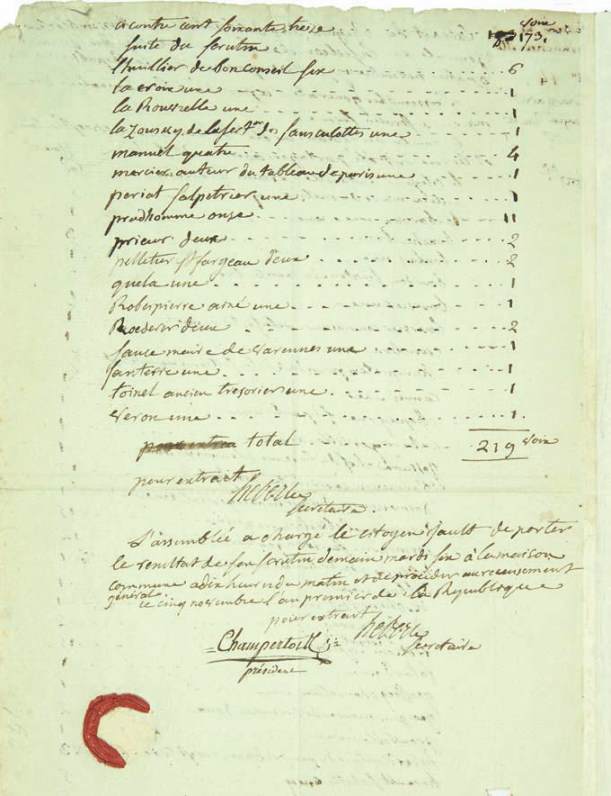 a contre cent soixante treize 173. voix
suite du scrutin
lhuillier de bon conseil six 6
la croix une 1
la Rousselle une 1
la Zouski, de la fer.on des sansculottes une 1
manuel quatre 4
mercier auteur du tableau de paris une 1
pariat salpetrier une 1
prudhomme onze 11
prieur deux 2
pelletier st fargeau deux 2
quela une 1
Roberpierre ainé une 1
Roederer deux 2
sauce maire de varennes une 1
santerre une 1
toinet ancien tresorier une 1
veron une 1
total 219 voix
pour extrait
secretaire
L'assemblée a chargé le citoyen de porter
le resultat de son scrutin demain mardi six à la maison
commune a dix heures du matin et de proceder au recensement
général ce cinq novembre l'an premier de la Republique
pour extrait
secretaire
président